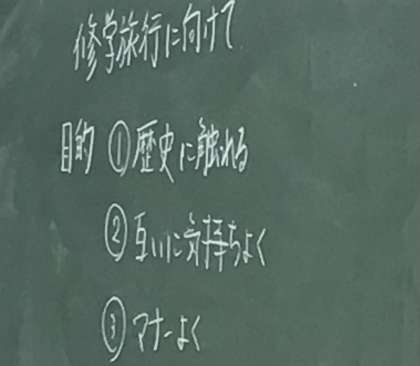 修学旅行に向けて
目的 ①歴史に触れる
②互いに気持ちよく
③マナーよく